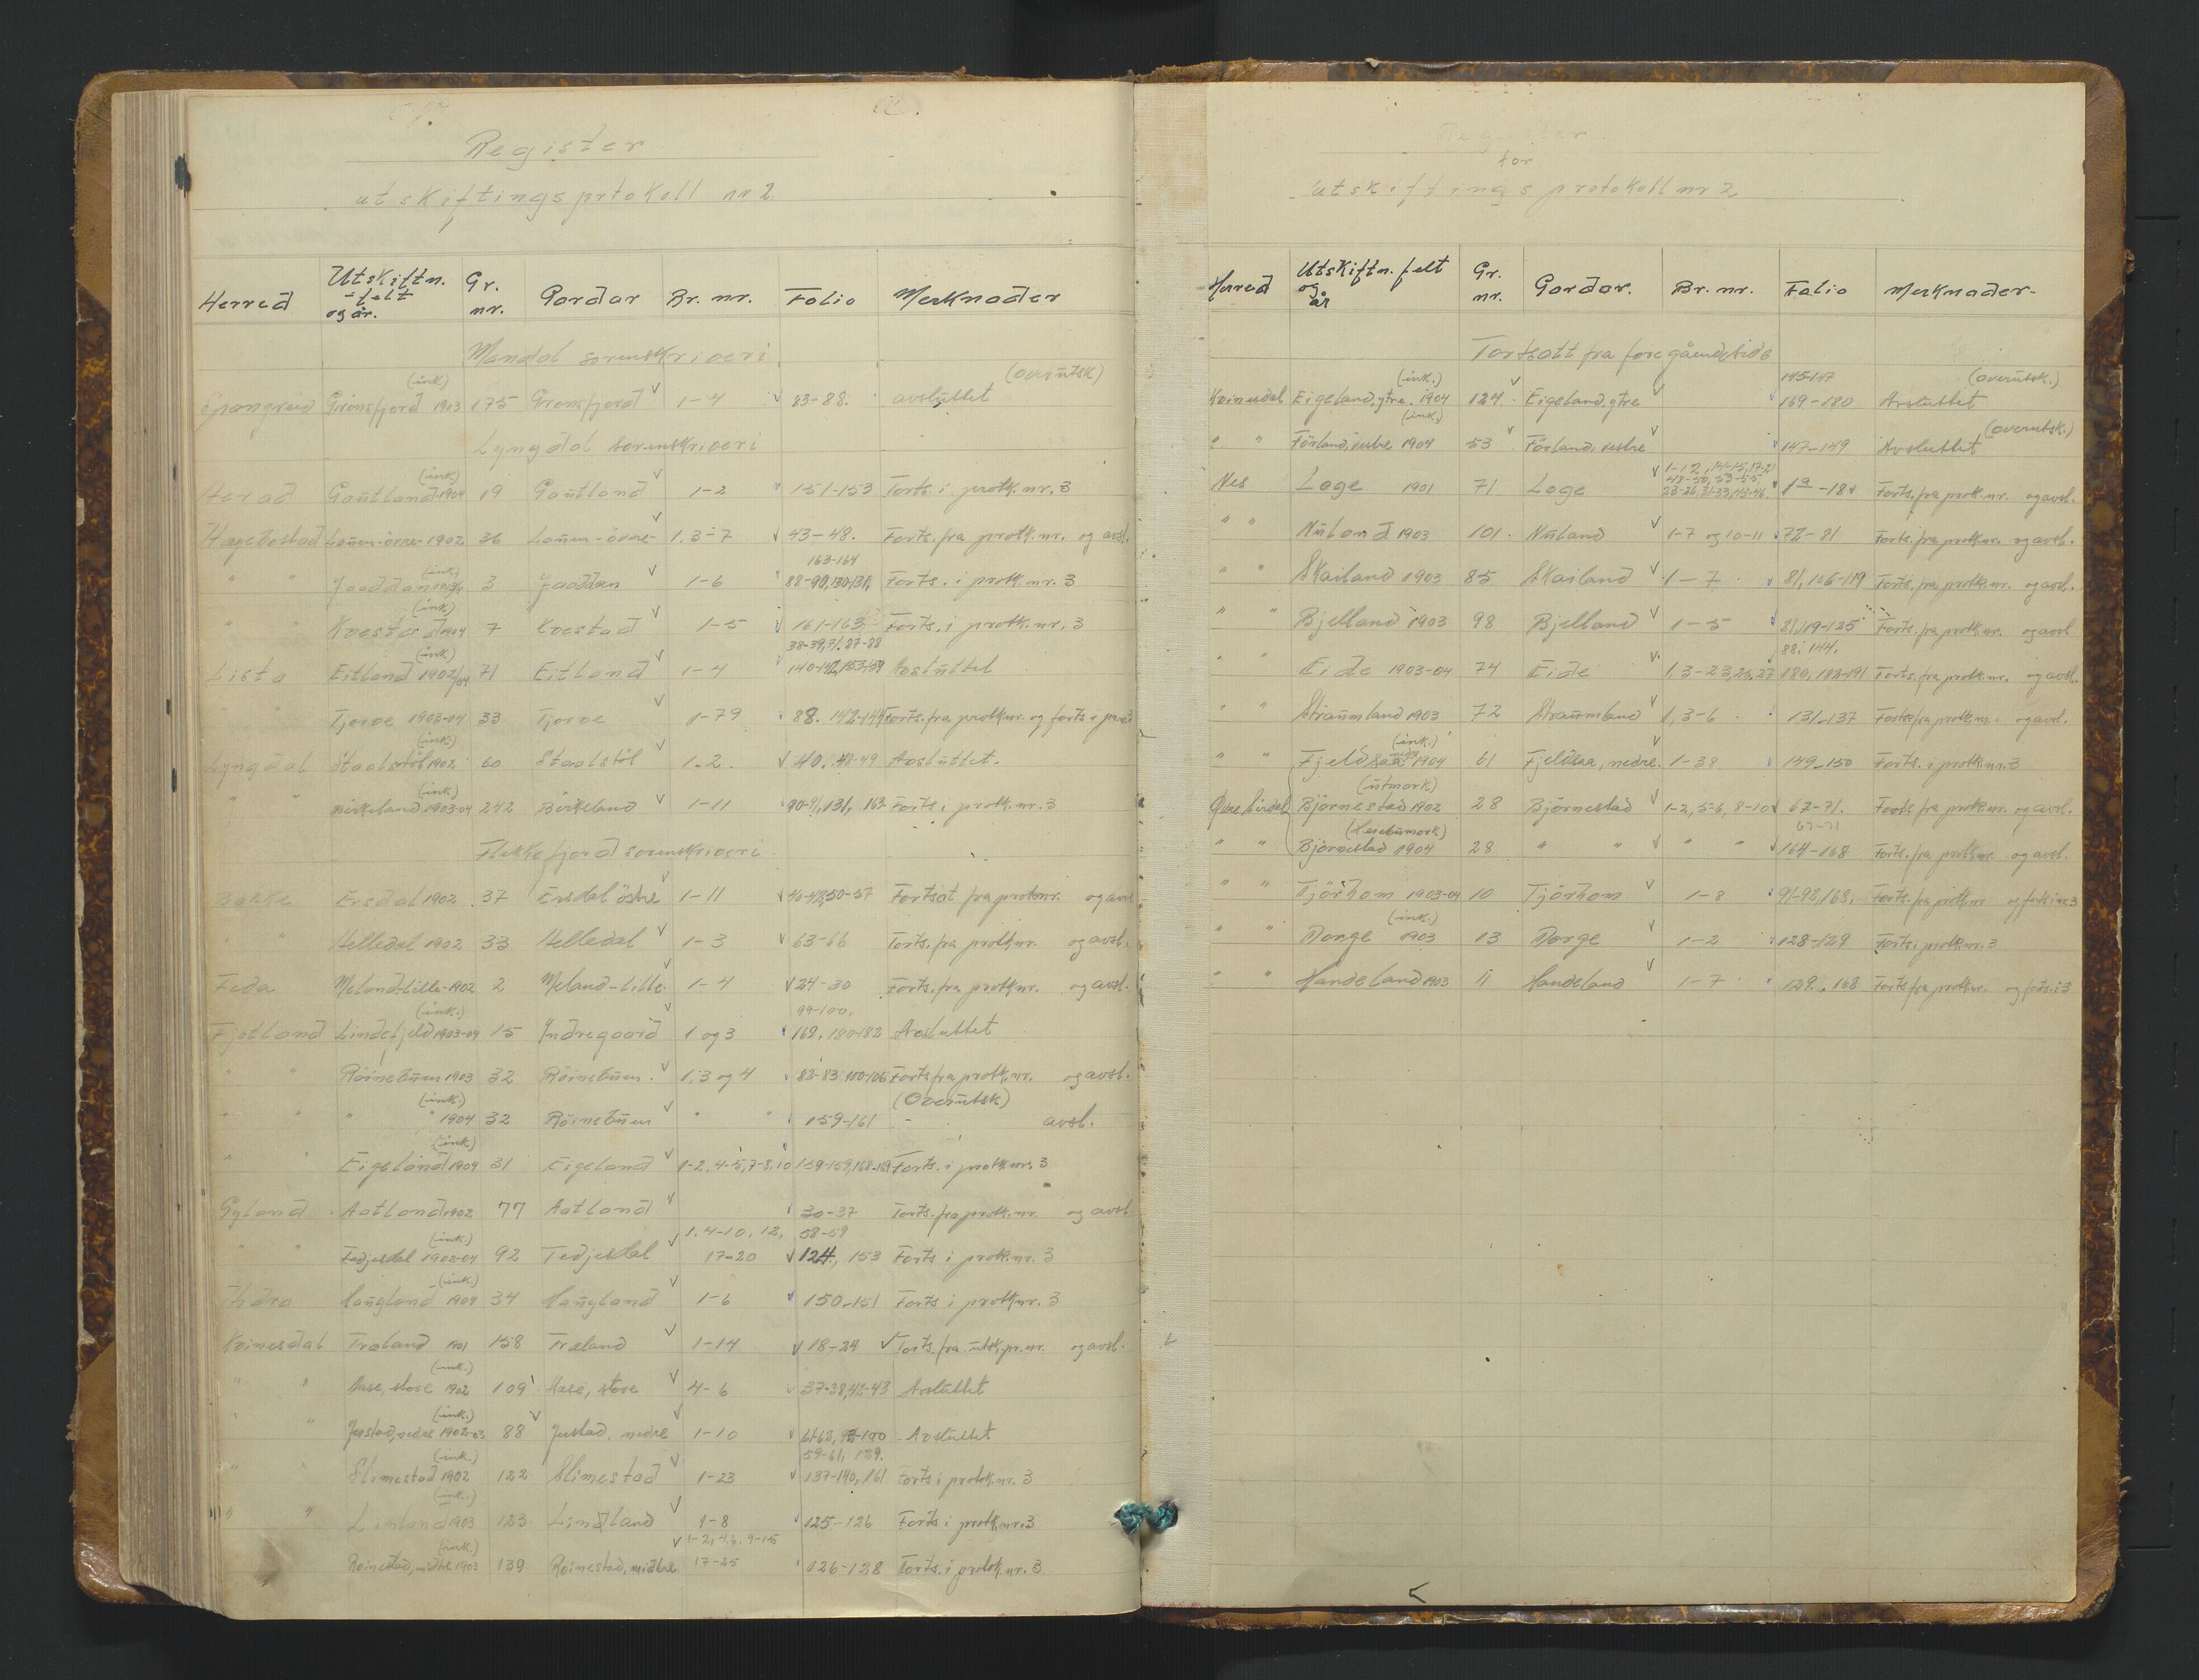 Register
utskiftingsprtokoll nr 2
Herred Utskiftn.-felt og år. Gr. nr. Gardar Br. nr. Folio Merknader
Mandal sorenskriveri
(ink) (overutsk)
Spangreid Grønsfjord 1903 175 Grønsfjord v 1-4 v 83-88. avsluttet
Lyngdal sorenskriveri
(ink)
Herad Gautland 1904 19 Gautland v 1-2 " 151-153 Forts. i protk. nr. 3
Hægebostad Lauen-övre- 1902 36 Lauen-övre- v 1.3-7 v 43-48. Forts. fra protk. nr. og avsl.
(ink) 163-164
" " Jaaddan 3 Jaaddan v 1-6 88-90,130-131, Forts. i protk. nr. 3
(ink)
" " Kvestad 1904 7 Kvestad v 1-5 v 161-163. Forts. i protk. nr. 3
(ink) 38-39,71.87-88
Lista Eitland 1902/04 71 Eitland v 1-4 v 140-142,153-159 Avsluttet
" Tjørve 1903-04 33 Tjorve v 1-79 88. 142-144 Forts. fra protk nr. og forts i pr.nr.3
(ink)
Lyngdal Staalstöl 1902 60 Staalstöl v 1-2. v 40. 48-49 Avsluttet.
(ink)
" " Birkeland 1903-04 242 Birkeland v 1-11 90-91, 131, 162 Forts. i protk. nr. 3
Flekkefjord sorenskriveri
Bakke Ersdal 1902 37 Ersdal östre v 1-11 v 40-42,50-57 Fortsat fra protk nr. og avsl
" " Helledal 1902 33 Helledal v 1-3 v 63-66 Forts. fra protk nr. og avsl.
Feda Meland-Lille-1902 2 Meland-Lille. v 1-4 v 24-30 Forts. fra protk nr. og avsl.
(ink.) 99-100,
Fjotland Lindefjeld 1903-04 15 Indregaard v 1 og 3 162, 180-182 Avsluttet
" " Röinebuen 1903 32 Röinebuen. v 1,3 og 4 82-83,100-106 Forts fra protk, nr. og avsl.
(ink.) (Overutsk)
" " " " 1904 32 Röinebuen v " " 159-161 - avsl.
(ink)
" " Eigeland 1904 31 Eigeland v 1-2, 4-5, 7-8, 10 159-159,168-169 Forts. i protk. nr. 3
Gyland Aatland 1902 77 Aatland v 30-37 Forts. fra protk. nr. og avsl.
(ink) 1. 4-10, 12, 58-59
" " Fedjesdal 1902-04 92 Tedjesdal v 17-20 v 124, 153 Forts i protk. nr. 3
(ink)
Hidra Haugland 1904 34 Haugland v 1-6 v 150-151 Forts i protk nr. 3
Kvinesdal Træland 1901 158 Træland v 1-14 v 18-24 v Forts. fra utsk. pr. nr. og avsl.
(ink.)
" " Aase, store 1902 109 Aase, store v 4-6 v 37-38,42-43 Avsluttet
(ink.)
" " Jerstad, nedre 1902-03 88 v Jerstad, nedre v 1-10 v 61-62, 92-100 Avsluttet
(ink.) 59-61, 129.
" " Slimestad 1902 122 Slimestad v 1-23 v 137-140, 161 Forts i protok. nr. 3
(ink.)
" " Lindland 1903 123 Lindland v 1-8 v 125-126 Forts i protk. nr. 3
(ink) v 1-2, 4.6. 9-15
Röinestad, midtre 1903 139 Röinestad, midtre 17-25 126-128 Forts. i protok. nr. 3
Register
for
utskiftingsprotokoll nr 2
Herred Utskiftn. felt og år Gr. nr. Gardar. Br. nr. Folio Merknader-
Fortsatt fra foregåendeside
(ink.) 145-147 (overutsk.)
Kvinesdal Eigeland, ytre. 1904 124 v Eigeland, ytre v 169-180 Avsluttet
(ink.) (overutsk.)
" " Förland, vestre 1904 53 v Förland, vestre v 147-149 Avsluttet
v 1-12, 14-15, 17-21
48-50, 53-55,
Nes Loge 1901 71 Loge 23-26,31-33,43-46. 1a-18 v Forts. fra prok. nr. og avsl.
" " Nuland 1903 101. Nuland v 1-7 og 10-11 72-81 Forts. fra prok. nr. og avsl.
" " Skailand 1903 85 Skailand v 1-7. v 81, 106-119 Forts. fra protk. nr. og avsl.
" " Bjelland 1903 98 Bjelland v 1-5 81,119-125 Forts. fra protk nr. og avsl
88. 144.
" " Eide 1903-04 74 Eide v. 1,3-23,25,27 180, 182-191 Forts. fra protk. nr. og avsl.
" " Straumland 1903 72 Straumland v 1, 3-6. 131-137 Forts fra protk. nr. og avsl.
(ink.)
" " Fjeldsaa nedre 1904 61 Fjeldsaa, nedre. v 1-38 149-150 Forts. i protk. nr. 3
(utmark)
Øvre Sirdal Björnestad 1902 28 Björnestad v 1-2, 5-6, 8-10 v 67-71. Forts fra protk. nr. og avsl.
67-71
" " Björnestad 1904 28 " " v " " v 164-168 Forts. fra protk nr. og avsl.
" " Tjörhom 1903-04 10 Tjörhom v 1-8 91-92, 168, Forts. fra protk. nr og forts i nr. 3
(ink.)
" " Dorge 1903 13 Dorge v 1-2 128-129 Forts i protk. nr. 3
" " Handeland 1903 11 Handeland v 1-7 129. 168 Forts fra protk nr. og forts. i 3